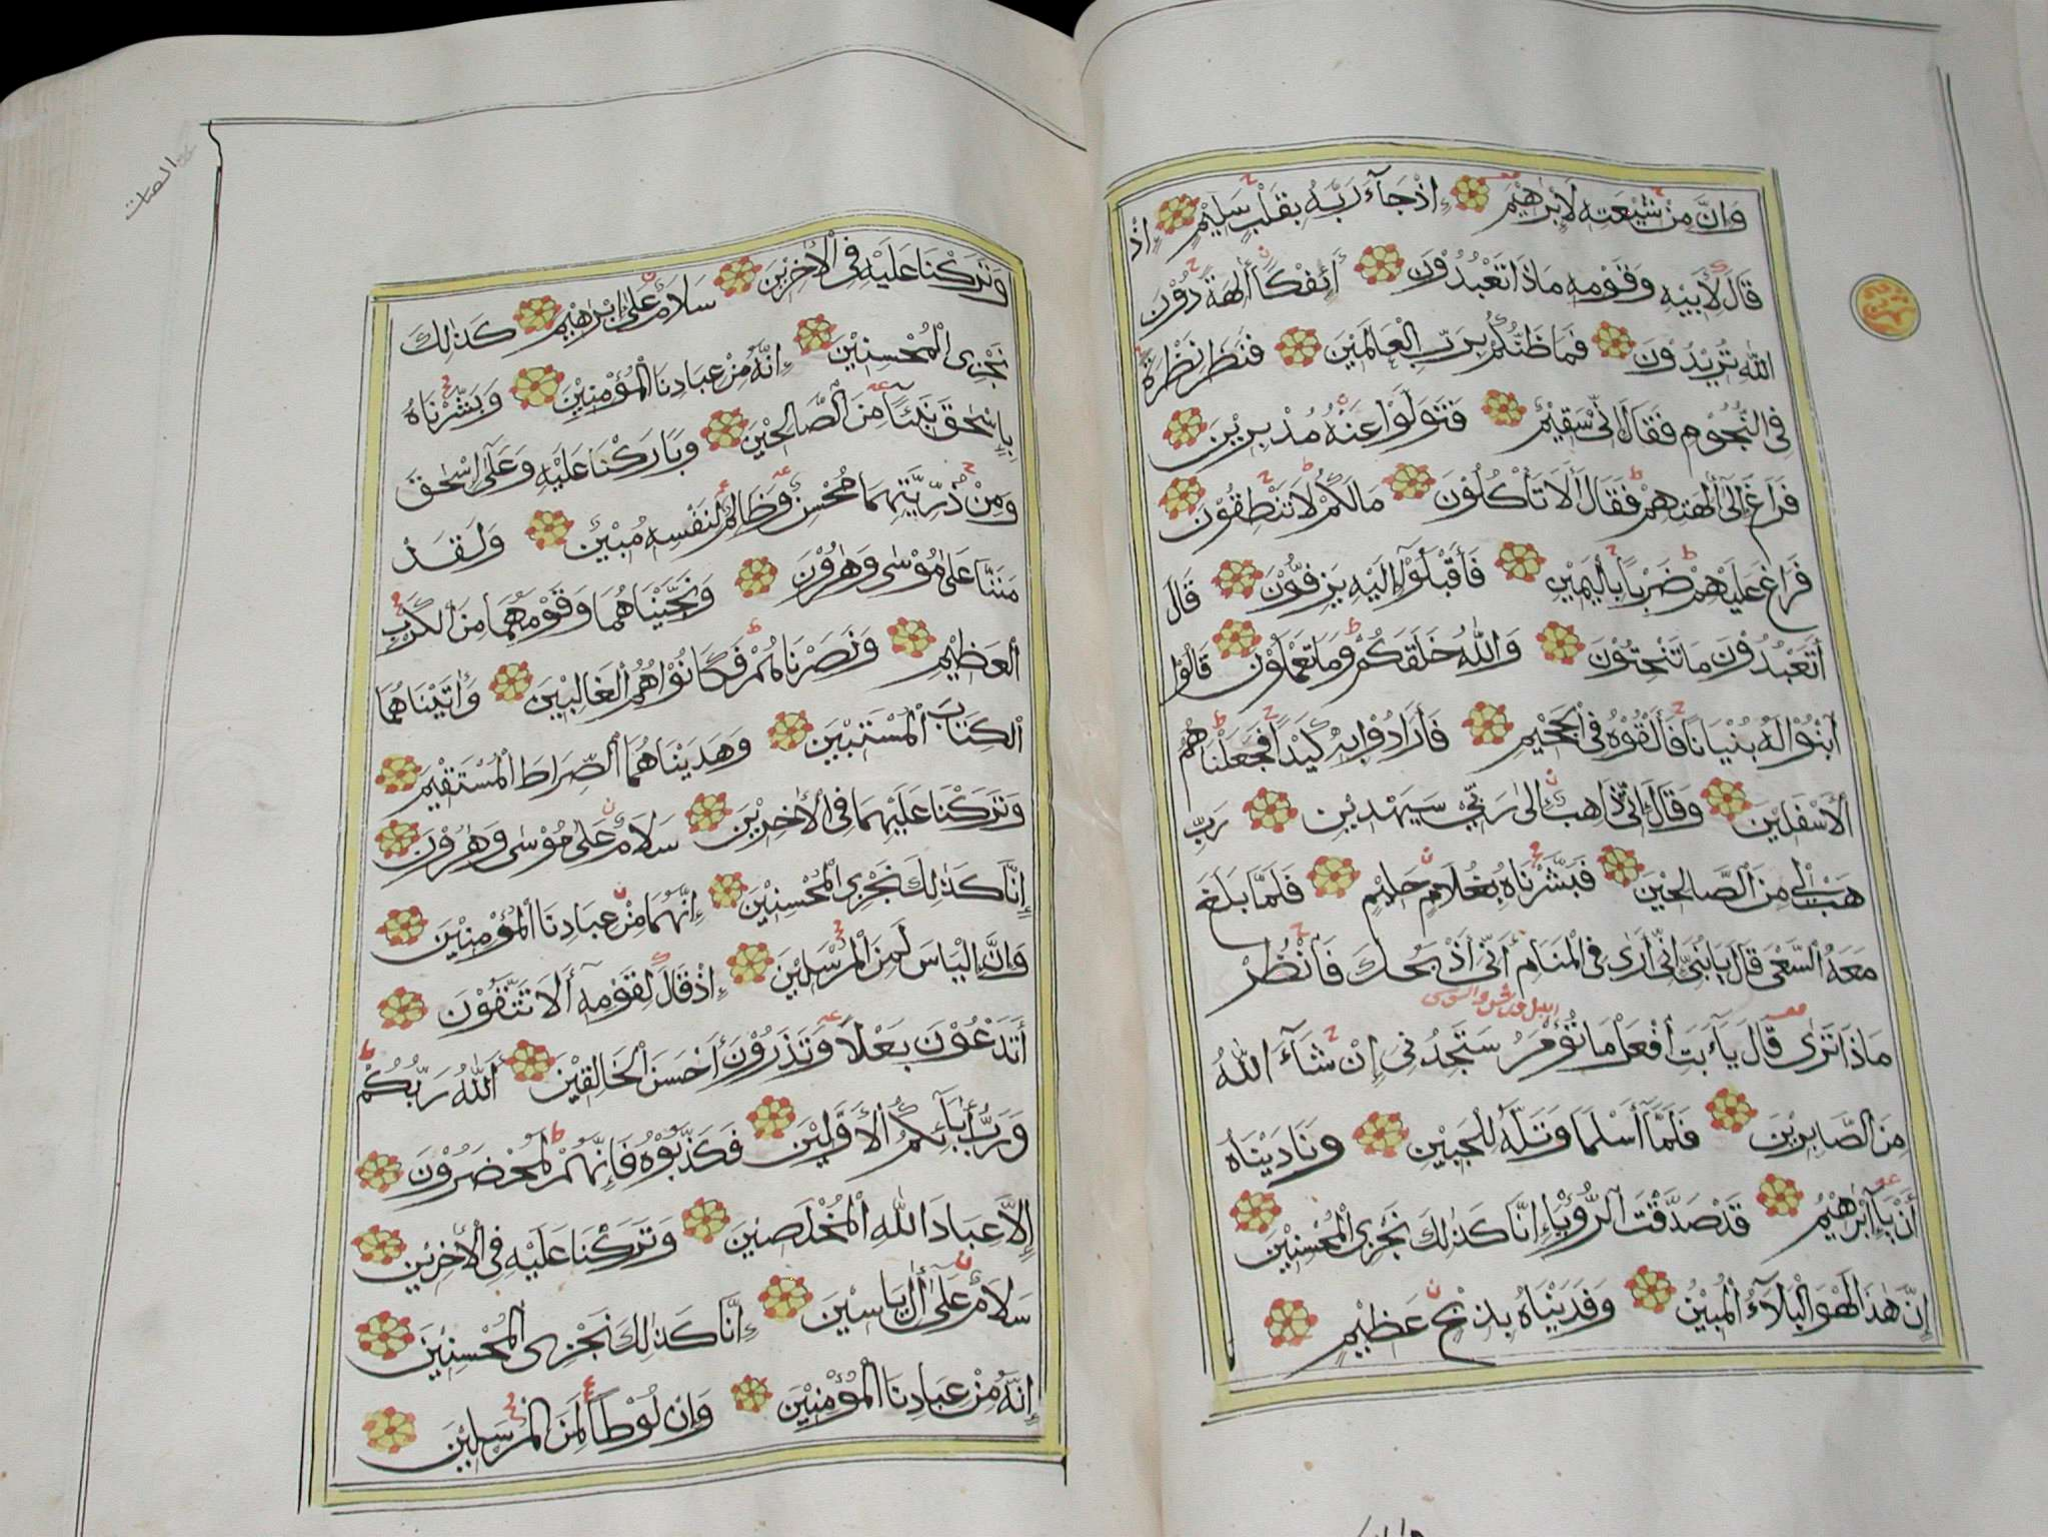 وَإِنَّ مِنْ شِيْعَتِهِ لَإِبْرٰهِيْمَ إِذْ جَآءَ رَبَّهُ بِقَلْبٍ سَلِيْمٍ إِذْ
قَالَ لِأَبِيْهِ وَقَوْمِهِ مَاذَا تَعْبُدُوْنَ أَئِفْكًا أٰلِهَةً دُوْنَ
اللّٰهِ تُرِيْدُوْنَ فَمَا ظَنُّكُمْ بِرَبِّ الْعَالَمِيْنَ فَنَظَرَ نَظْرَةً
فِي النُّجُوْمِ فَقَالَ إِنِّيْ سَقِيْمٌ فَتَوَلَّوْا عَنْهُ مُدْبِرِيْنَ
فَرَاغَ إِلَىٰ أٰلِهَتِهِمْ فَقَالَ أَلَا تَأْكُلُوْنَ مَالَكُمْ لَا تَنْطِقُوْنَ
فَرَاغَ عَلَيْهِمْ ضَرْبًا بِالْيَمِيْنِ فَأَقْبَلُوْآ إِلَيْهِ يَزِفُّوْنَ قَالَ
أَتَعْبُدُوْنَ مَا تَنْحِتُوْنَ وَاللّٰهُ خَلَقَكُمْ وَمَا تَعْمَلُوْنَ قَالُوْا
ابْنُوْا لَهُ بُنْيَانًا فَأَلْقُوْهُ فِي الْجَحِيْمِ فَأَرَادُوْا بِهِ كَيْدًا فَجَعَلْنَاهُمُ
الْأَسْفَلِيْنَ وَقَالَ إِنِّيْ ذَاهِبٌ إِلَىٰ رَبِّيْ سَيَهْدِيْنِ رَبِّ
هَبْ لِيْ مِنَ الصَّالِحِيْنَ فَبَشَّرْنَاهُ بِغُلَامٍ حَلِيْمٍ فَلَمَّا بَلَغَ
مَعَهُ السَّعْيَ قَالَ يَابُنَيَّ إِنِّيْ أَرَىٰ فِي الْمَنَامِ أَنِّيْ أَذْبَحُكَ فَانْظُرْ
مَاذَا تَرَىٰ قَالَ يَآأَبَتِ افْعَلْ مَا تُؤْمَرُ سَتَجِدُنِيْ إِنْ شَآءَ اللّٰهُ
مِنَ الصَّابِرِيْنَ فَلَمَّآ أَسْلَمَا وَتَلَّهُ لِلْجَبِيْنِ وَنَادَيْنَاهُ
أَنْ يَآإِبْرٰهِيْمُ قَدْ صَدَّقْتَ الرُّؤْيَآ إِنَّا كَذٰلِكَ نَجْزِي الْمُحْسِنِيْنَ
إِنَّ هٰذَا لَهُوَ الْبَلَآءُ الْمُبِيْنُ وَفَدَيْنَاهُ بِذِبْحٍ عَظِيْمٍ
وَتَرَكْنَا عَلَيْهِ فِي الْأٰخِرِيْنَ سَلَامٌ عَلَىٰ إِبْرٰهِيْمَ كَذٰلِكَ
نَجْزِي الْمُحْسِنِيْنَ إِنَّهُ مِنْ عِبَادِنَا الْمُؤْمِنِيْنَ وَبَشَّرْنَاهُ
بِإِسْحٰقَ نَبِيًّا مِنَ الصَّالِحِيْنَ وَبَارَكْنَا عَلَيْهِ وَعَلَىٰ إِسْحٰقَ
وَمِنْ ذُرِّيَّتِهِمَا مُحْسِنٌ وَظَالِمٌ لِنَفْسِهِ مُبِيْنٌ وَلَقَدْ
مَنَنَّا عَلَىٰ مُوْسَىٰ وَهٰرُوْنَ وَنَجَّيْنَاهُمَا وَقَوْمَهُمَا مِنَ الْكَرْبِ
الْعَظِيْمِ وَنَصَرْنَاهُمْ فَكَانُوْا هُمُ الْغَالِبِيْنَ وَأٰتَيْنَاهُمَا
الْكِتَابَ الْمُسْتَبِيْنَ وَهَدَيْنَاهُمَا الصِّرَاطَ الْمُسْتَقِيْمَ
وَتَرَكْنَا عَلَيْهِمَا فِي الْأٰخِرِيْنَ سَلَامٌ عَلَىٰ مُوْسَىٰ وَهٰرُوْنَ
إِنَّا كَذٰلِكَ نَجْزِي الْمُحْسِنِيْنَ إِنَّهُمَا مِنْ عِبَادِنَا الْمُؤْمِنِيْنَ
وَإِنَّ إِلْيَاسَ لَمِنَ الْمُرْسَلِيْنَ إِذْ قَالَ لِقَوْمِهِ أَلَا تَتَّقُوْنَ
أَتَدْعُوْنَ بَعْلًا وَتَذَرُوْنَ أَحْسَنَ الْخَالِقِيْنَ أَللّٰهُ رَبُّكُمْ
وَرَبُّ أٰبَآئِكُمُ الْأَوَّلِيْنَ فَكَذَّبُوْهُ فَإِنَّهُمْ لَمُحْضَرُوْنَ
إِلَّا عِبَادَ اللّٰهِ الْمُخْلَصِيْنَ وَتَرَكْنَا عَلَيْهِ فِي الْأٰخِرِيْنَ
سَلَامٌ عَلَىٰ أٰلِ يَاسِيْنَ إِنَّا كَذٰلِكَ نَجْزِي الْمُحْسِنِيْنَ
إِنَّهُ مِنْ عِبَادِنَا الْمُؤْمِنِيْنَ وَإِنَّ لُوْطًا لَمِنَ الْمُرْسَلِيْنَ